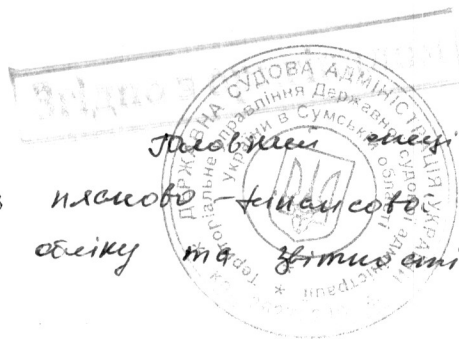 Згідно з
ДЕРЖАВНА СУДОВА АДМІНІСТРАЦІЯ УКРАЇНИ
Територіальне управління Державної судової адміністрації
України в Сумській області
Головний спеці
планово-фінансової
обліку та звітності